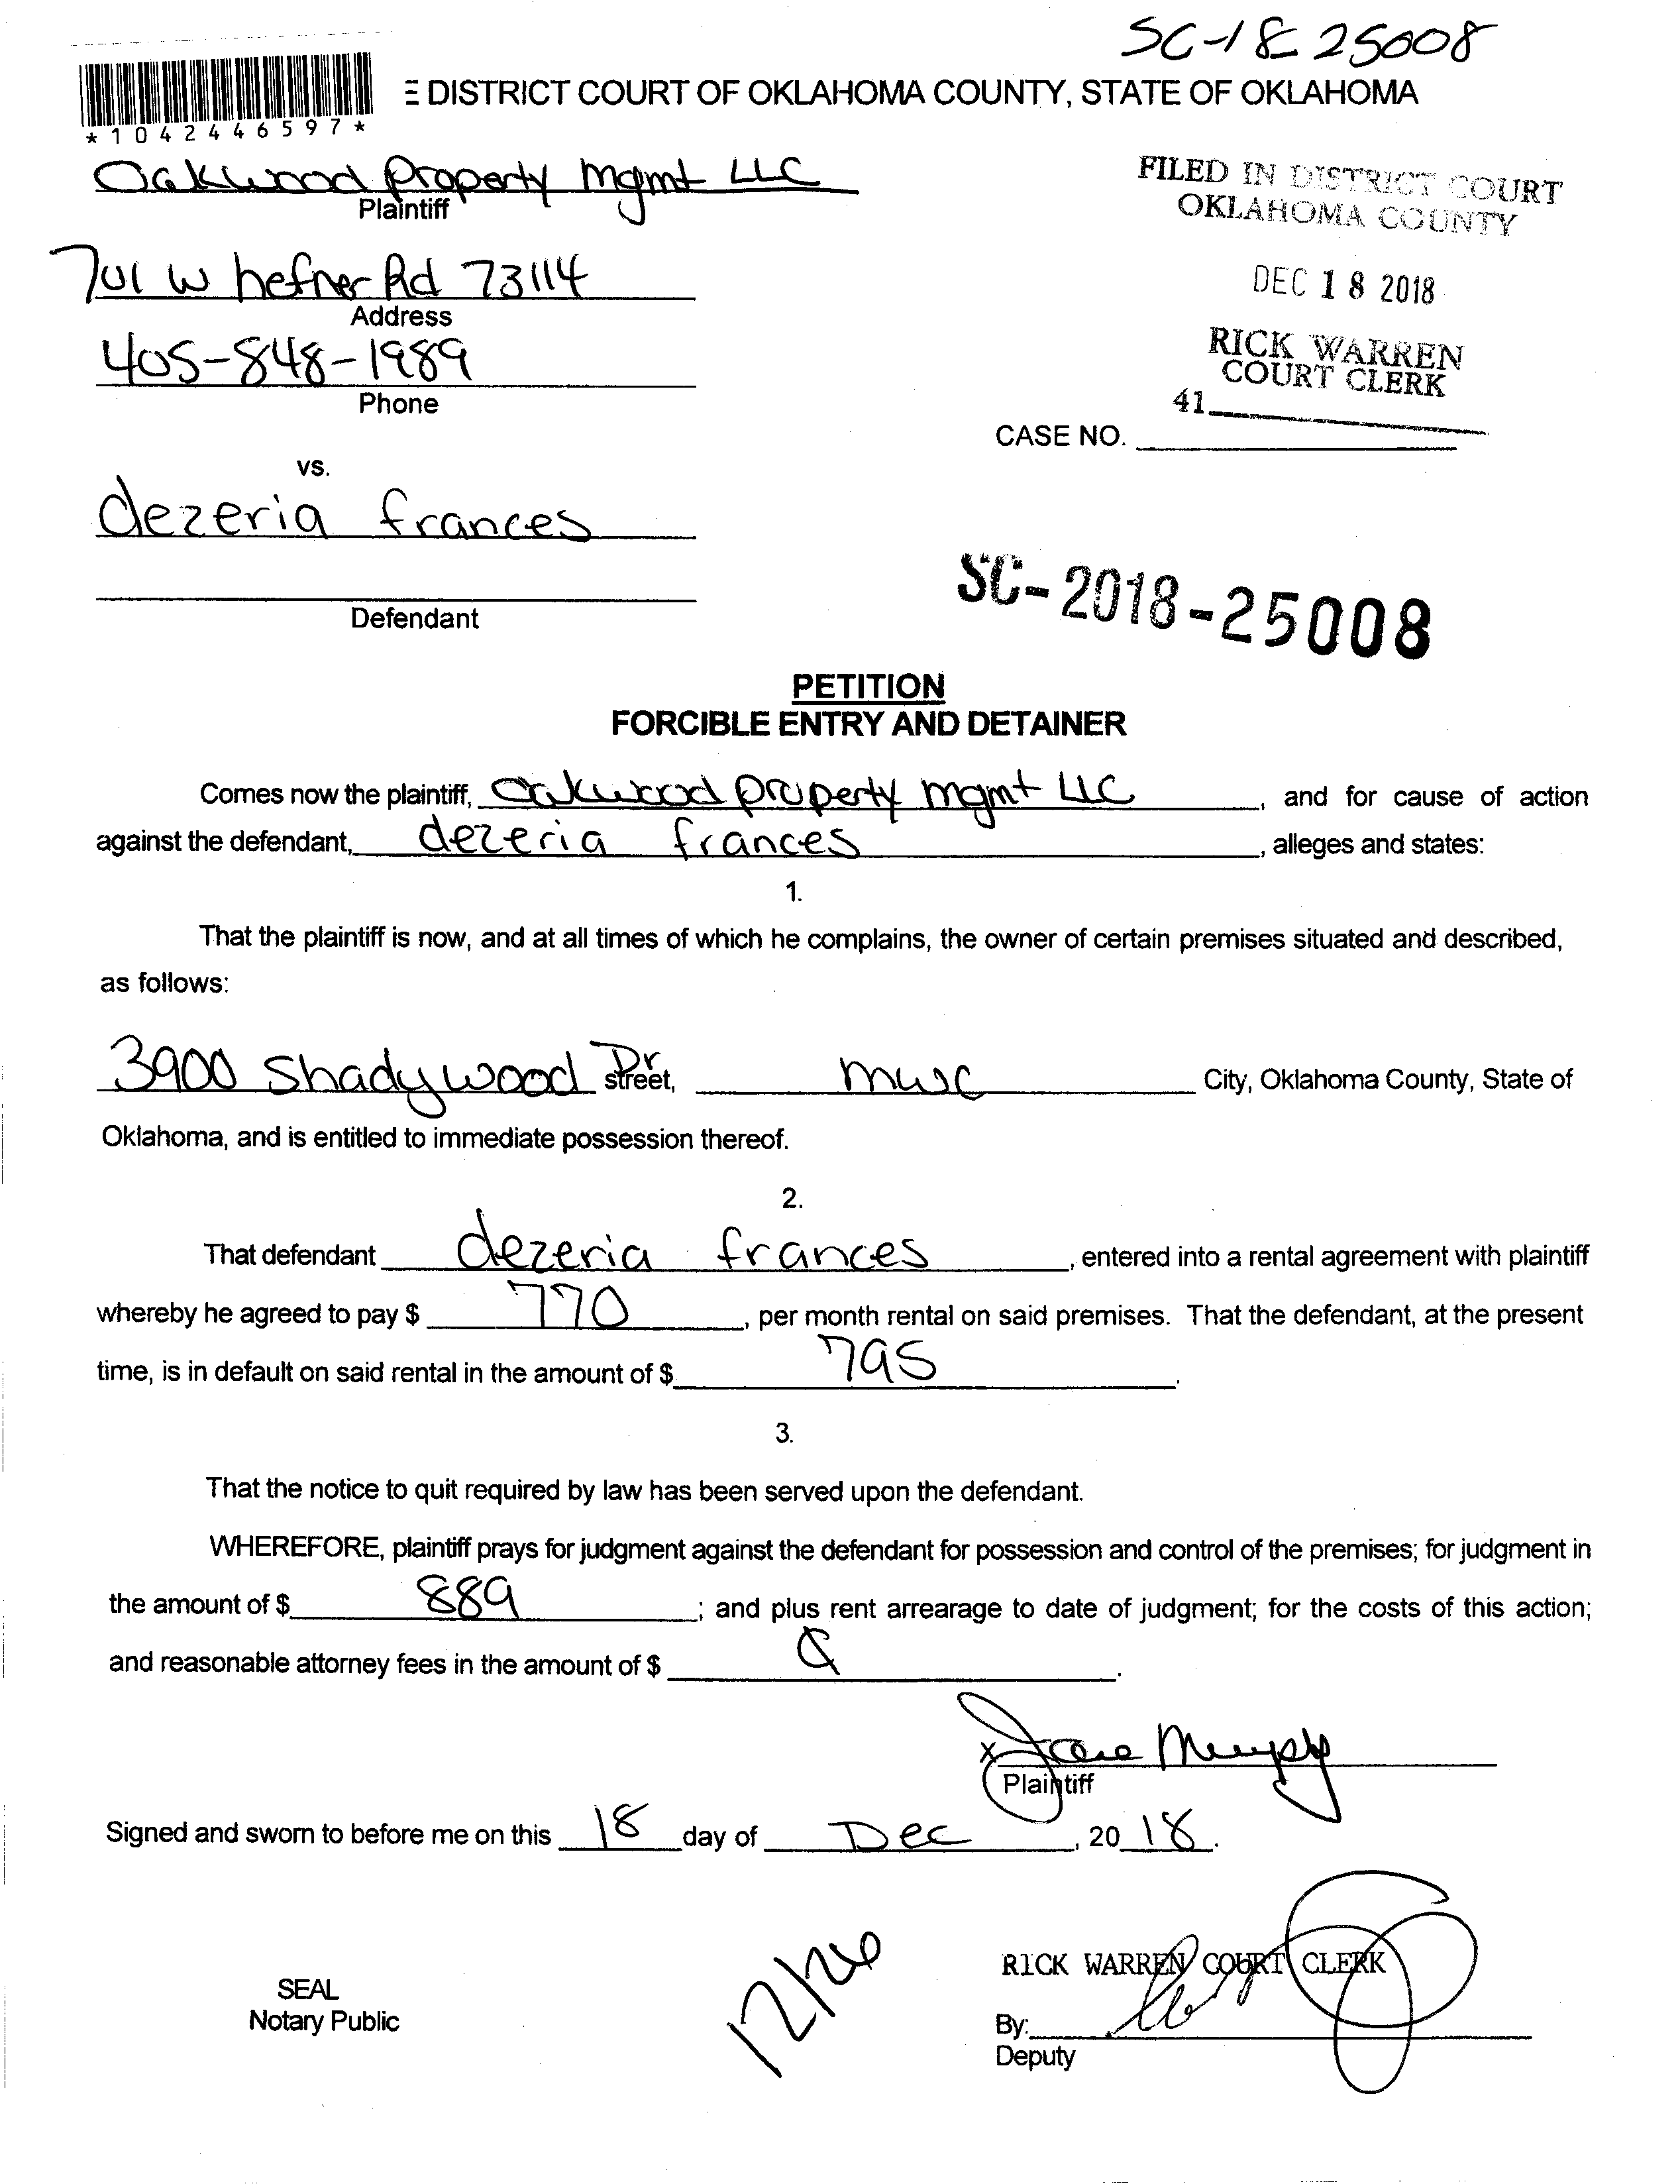 SC-18 25008
E DISTRICT COURT OF OKLAHOMA COUNTY, STATE OF OKLAHOMA
*1042446597*
Oakwood property mgmt LLC
Plaintiff
FILED IN DISTRICT COURT
OKLAHOMA COUNTY
701 W hefner Rd 73114
Address
DEC 18 2018
405-848-1989
Phone
RICK WARREN
COURT CLERK
41
CASE NO.
vs.
dezeria frances
Defendant
SC-2018-25008
PETITION
FORCIBLE ENTRY AND DETAINER
Comes now the plaintiff, Oakwood property mgmt LLC, and for cause of action
against the defendant, dezeria frances, alleges and states:
1.
That the plaintiff is now, and at all times of which he complains, the owner of certain premises situated and described,
as follows:
3900 Shadywood Dr street, mwc City, Oklahoma County, State of
Oklahoma, and is entitled to immediate possession thereof.
2.
That defendant dezeria frances, entered into a rental agreement with plaintiff
whereby he agreed to pay $ 770, per month rental on said premises. That the defendant, at the present
time, is in default on said rental in the amount of $ 795.
3.
That the notice to quit required by law has been served upon the defendant.
WHEREFORE, plaintiff prays for judgment against the defendant for possession and control of the premises; for judgment in
the amount of $ 889; and plus rent arrearage to date of judgment; for the costs of this action;
and reasonable attorney fees in the amount of $.
x Murphy
Plaintiff
Signed and sworn to before me on this 18 day of Dec, 20 18.
12/26
RICK WARREN COURT CLERK
SEAL
Notary Public
By:
Deputy